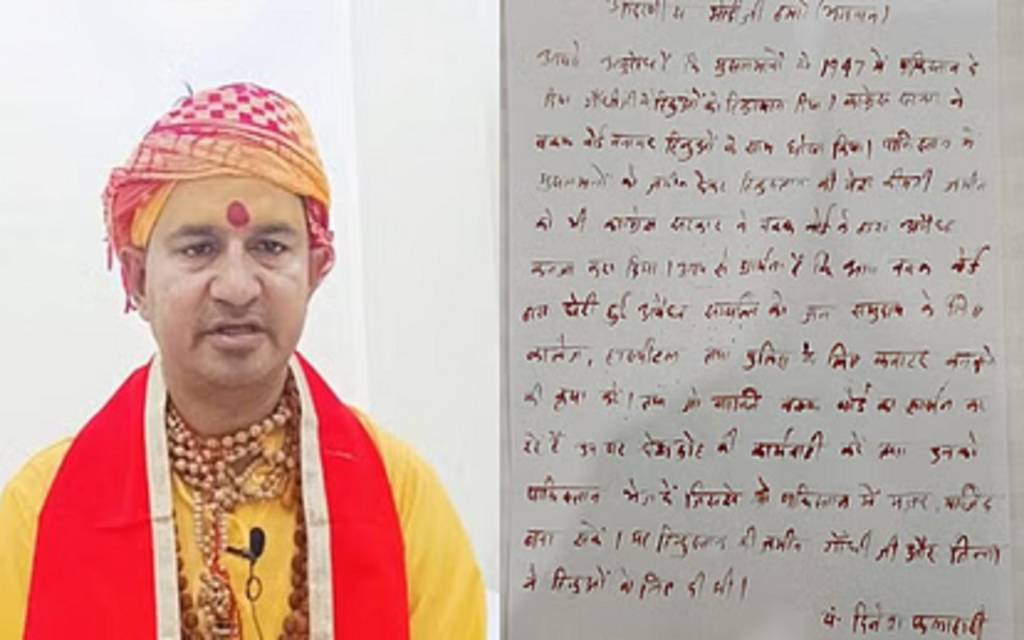 आदरणीय मोदी जी
मुसलमानों को 1947 में पाकिस्तान दे
दिया गाँधी जी ने हिन्दुओं को हिन्दुस्तान दिया। कांग्रेस सरकार ने
वक्फ बोर्ड बनाकर हिन्दुओं के साथ धोखा किया। पाकिस्तान में
मुसलमानों को जमीन देकर हिन्दुस्तान की जमीन
को भी कांग्रेस सरकार ने वक्फ बोर्ड के द्वारा
कब्जा करा दिया। आप से प्रार्थना है कि आप वक्फ बोर्ड
द्वारा घेरी हुई सम्पत्ति को जन समुदाय के लिए
कालेज, हास्पीटल तथा पुलिस के लिए क्वाटर बनवाने
की कृपा करें। वक्फ बोर्ड का समर्थन कर
रहे हैं उन पर देशद्रोह की कार्यवाही करें तथा उनको
पाकिस्तान भेज दें जिससे वो पाकिस्तान में मजार, मस्जिद
बना सकें। यह हिन्दुस्तान की जमीन गाँधी जी और जिन्ना
ने हिन्दुओं के लिए दी थी।
पं. दिनेश फलाहारी